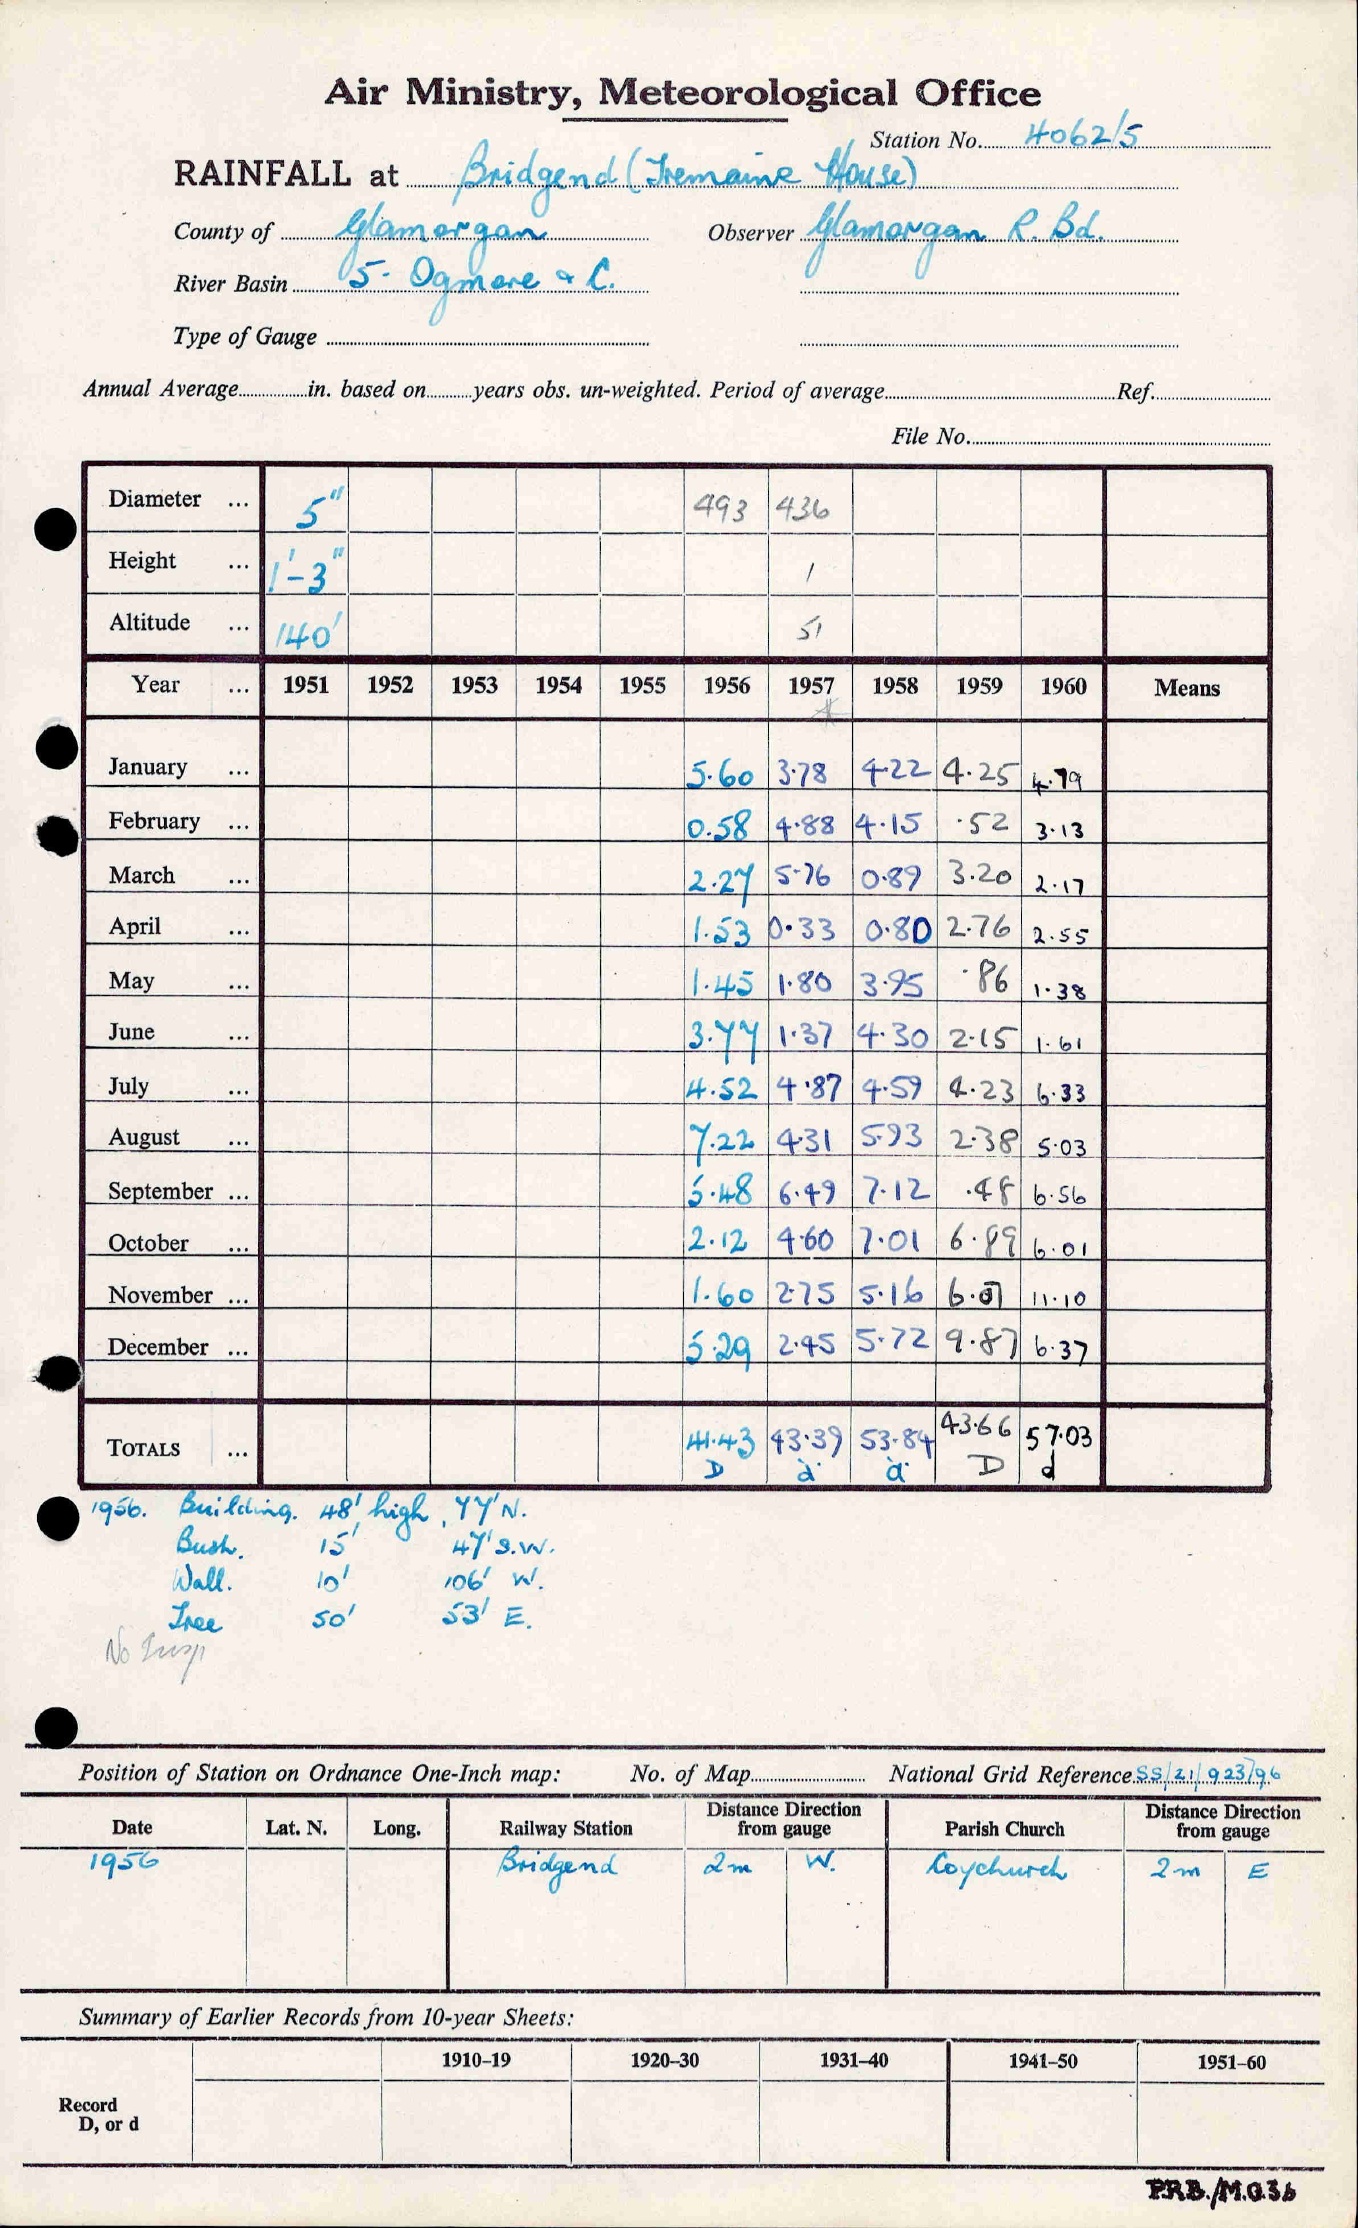 Air Ministry, Meteorological Office
Station No. 4062/5
RAINFALL at Bridgend (Tremaine House)
County of Glamorgan Observer Glamorgan R. Bd.
River Basin 5. Ogmore & C.
Type of Gauge
Annual Average in. based on years obs. un-weighted. Period of average Ref.
File No.
Diameter ... 5" 493 436
Height ... 1'-3" 1
Altitude ... 140' 51
Year ... 1951 1952 1953 1954 1955 1956 1957 1958 1959 1960 Means
January ... 5.60 3.78 4.22 4.25 4.79
February ... 0.58 4.88 4.15 .52 3.13
March ... 2.27 5.76 0.89 3.20 2.17
April ... 1.53 0.33 0.80 2.76 2.55
May ... 1.45 1.80 3.95 .86 1.38
June ... 3.77 1.37 4.30 2.15 1.61
July ... 4.52 4.87 4.59 4.23 6.33
August ... 7.22 4.31 5.93 2.38 5.03
September ... 5.48 6.49 7.12 .48 6.56
October ... 2.12 4.60 7.01 6.89 6.01
November ... 1.60 2.75 5.16 6.07 11.10
December ... 5.29 2.45 5.72 9.87 6.37
TOTALS ... 41.43 43.39 53.84 43.66 57.03
D d d D d
1956. Building. 48' high, 77' N.
Bush. 15' 47' S.W.
Wall. 10' 106' W.
Tree 50' 53' E.
No Insp
Position of Station on Ordnance One-Inch map: No. of Map National Grid Reference SS/21/923/96
Date Lat. N. Long. Railway Station Distance Direction from gauge Parish Church Distance Direction from gauge
1956 Bridgend 2m W. Coychurch 2m E
Summary of Earlier Records from 10-year Sheets:
1910-19 1920-30 1931-40 1941-50 1951-60
Record
D, or d
P.R.B./M.O.36